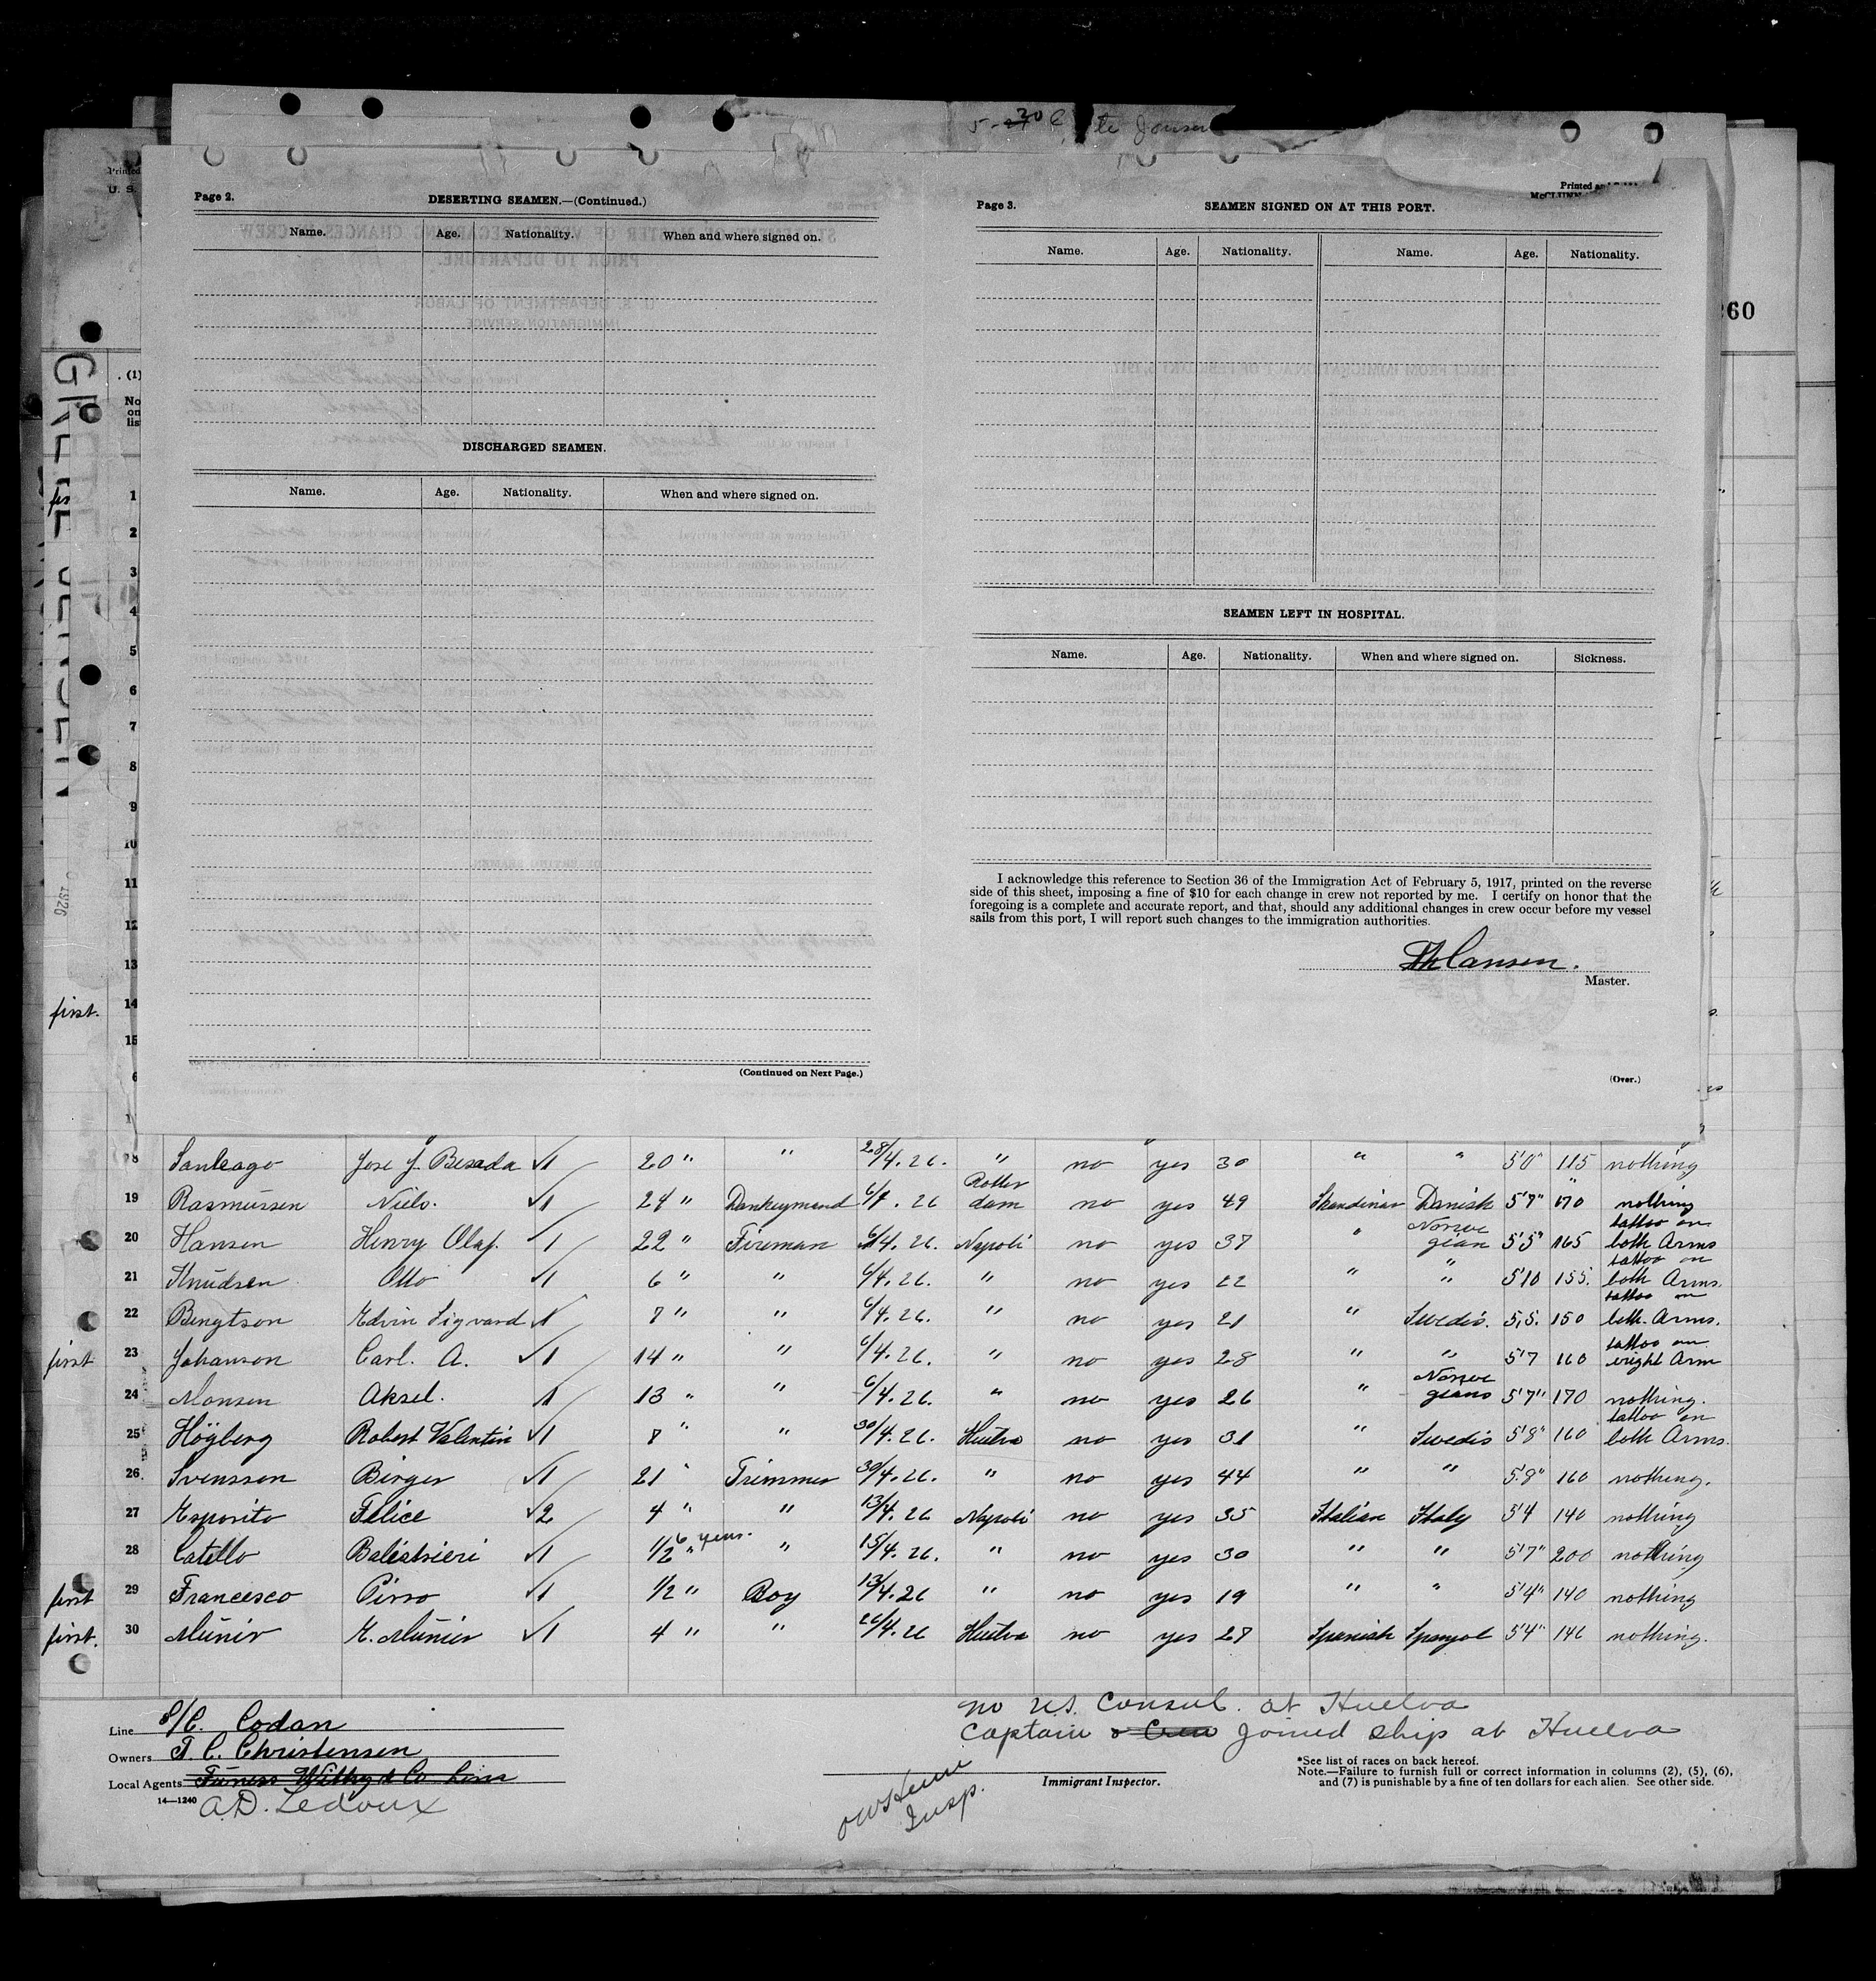 Page 2.
DESERTING SEAMEN.—(Continued.)
Name. Age. Nationality. When and where signed on.
DISCHARGED SEAMEN.
Name. Age. Nationality. When and where signed on.
(Continued on Next Page.)
Page 3.
SEAMEN SIGNED ON AT THIS PORT.
Name. Age. Nationality. Name. Age. Nationality.
SEAMEN LEFT IN HOSPITAL.
Name. Age. Nationality. When and where signed on. Sickness.
I acknowledge this reference to Section 36 of the Immigration Act of February 5, 1917, printed on the reverse
side of this sheet, imposing a fine of $10 for each change in crew not reported by me. I certify on honor that the
foregoing is a complete and accurate report, and that, should any additional changes in crew occur before my vessel
sails from this port, I will report such changes to the immigration authorities.
Master.
(Over.)
Printed
U. S.
(1)
No
on
lis
260
1
2
3
4
5
6
7
8
9
10
11
12
13
first. 14
15
6
1
8 Santeago Jose J. Besada √1 20 " " 28/4. 26. " no yes 30 " " 5'0" 115 nothing
19 Rasmussen Niels. √1 24 " Donkeymand 6/4. 26 Rotterdam no yes 49 Skandinav Danish 5'7" 170 nothing
20 Hansen Henry Olaf. √1 22 " Fireman 6/4. 26. Napoli no yes 37 " Norwegian 5'5" 165 tattoo on both Arms
21 Knudsen Otto √1 6 " " 6/4. 26. " no yes 22 " " 5'10 155. tattoo on both Arms.
22 Bengtson Edvin Sigvard √1 7 " " 6/4. 26. " no yes 21 " Swedis. 5,5. 150 tattoo on both Arms.
first 23 Johanson Carl. A. √1 14 " " 6/4. 26. " no yes 28 " " 5'7 160 tattoo on wright Arm
24 Monsen Aksel. 1 13 " " 6/4. 26. " no yes 26 " Norwegians 5'7" 170 nothing.
25 Högberg Robert Valentin √1 8 " " 30/4. 26. Huelva no yes 31 " Swedis 5'8" 160 tattoo on both Arms.
26. Svensson Birger √1 21 " Trimmer 30/4. 26. " no yes 44 " " 5.8" 160 nothing.
27 Esposito Felice √2 4 " " 13/4. 26 Napoli no yes 35 Italian Italy 5'4 140 nothing
28 Catello Balestrieri √1 1/2 " 6 years. " 13/4. 26. " no yes 30 " " 5'7" 200 nothing
first 29 Francesco Pirro √1 1/2 " Boy 13/4. 26 " no yes 19 " " 5'4" 140 nothing
first. 30 Munir E. Munier √1 4 " " 26/4. 26 Huelva no yes 27 Spanish Spanyol 5'4" 146 nothing.
Line S/C. Codan
Owners T. C. Christensen
Local Agents Furness Withy & Co Line
14—1240 A.D. Ledoux
no U.S. Consul. at Huelva
Captain & Crew joined ship at Huelva
Insp.
Immigrant Inspector.
*See list of races on back hereof.
Note.—Failure to furnish full or correct information in columns (2), (5), (6),
and (7) is punishable by a fine of ten dollars for each alien. See other side.